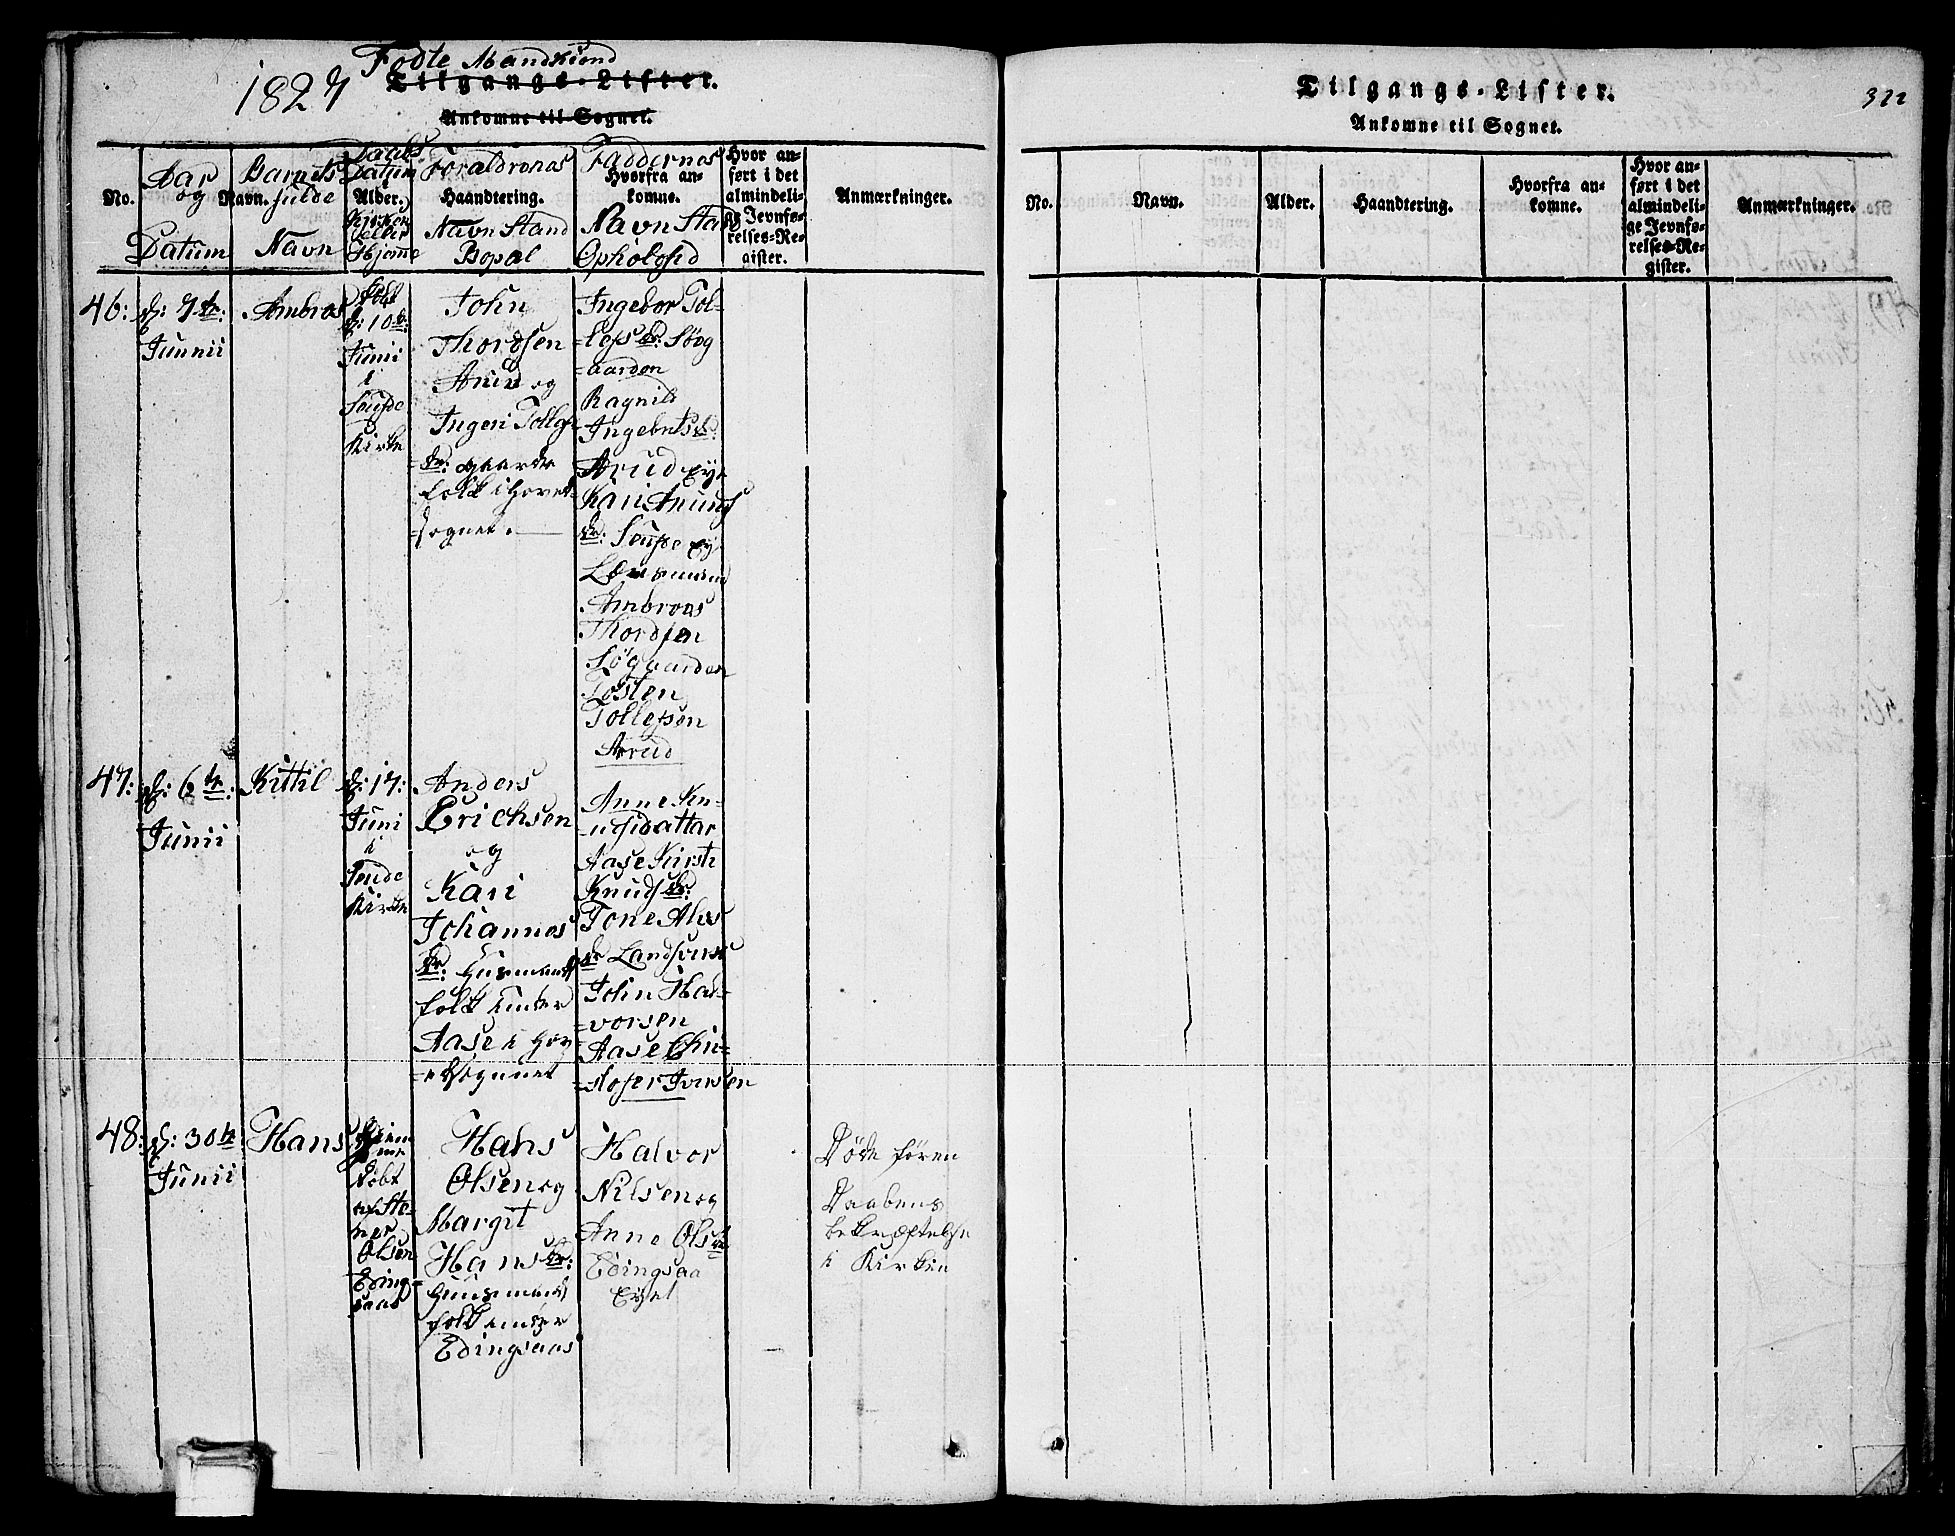 Fødte Mandkiønd
1827
Tilgangs-Lister.
Ankomne til Sognet.
No.
Aar
og
Datum
Navn.
Barnets
fulde
Navn
Daabs
Datum
Alder.
Kirken
eller
Hjemme
Forældrenes
Haandtering.
Navn Stand
Bopæl
Faddernes
Hvorfra an-
komne.
Navn Stand
Opholdsted
Hvor an-
ført i det
almindeli-
ge Jevnfø-
relses-Re-
gister.
Anmærkninger.
46:
d: 7de:
Junii
Ambros
Døbt
d: 10de:
Junii
i
Soufde
Kirke
John
Thordsen
Arud og
Ingeri Tollefs
dr: gaarde
folk i Hovet
=sognet.
Ingebor Tol-
=lefs dr: Søeg
=aarden
Ragnild
Ingebrets dr:
Arud Eye
Kari Anunds
dr: Soufde Ey
Lensmand
Ambroes
Thordsen
Søgaarden
Tosten
Tollefsen
Arud
47:
d: 6te:
Junii
Kittil
d: 17:
Juni
i
Soude
Kirke
Anders
Erichsen
og
Kari
Johannes
dr: Husmands
folk under
Aase i Hov
=edsognet
Anne Kn-
=udsdatter
Aase Kirsti
Knuds dr:
Tone Ales
dr Landsverk
John Hal-
=vorsen
Aase Chri-
=stofer Iversen
48:
d: 30te
Junii
Hans
Hjem
me
døbt
af Ste-
ner
Olsen
Eding-
saas
Hans
Olsen og
Margit
Hans dr:
Huusmands
folk under
Edingsaas
Halvor
Nilsen og
Anne Ols dr
Edingsaa
Eyet
Døde føren
Daabens
bekræftelse
i Kirken
Tilgangs-Lister.
Ankomne til Sognet.
322
No.
Navn.
Alder.
Haandtering.
Hvorfra an-
komne.
Hvor an-
ført i det
almindeli-
ge Jevnfø-
relses-Re-
gister.
Anmærkninger.